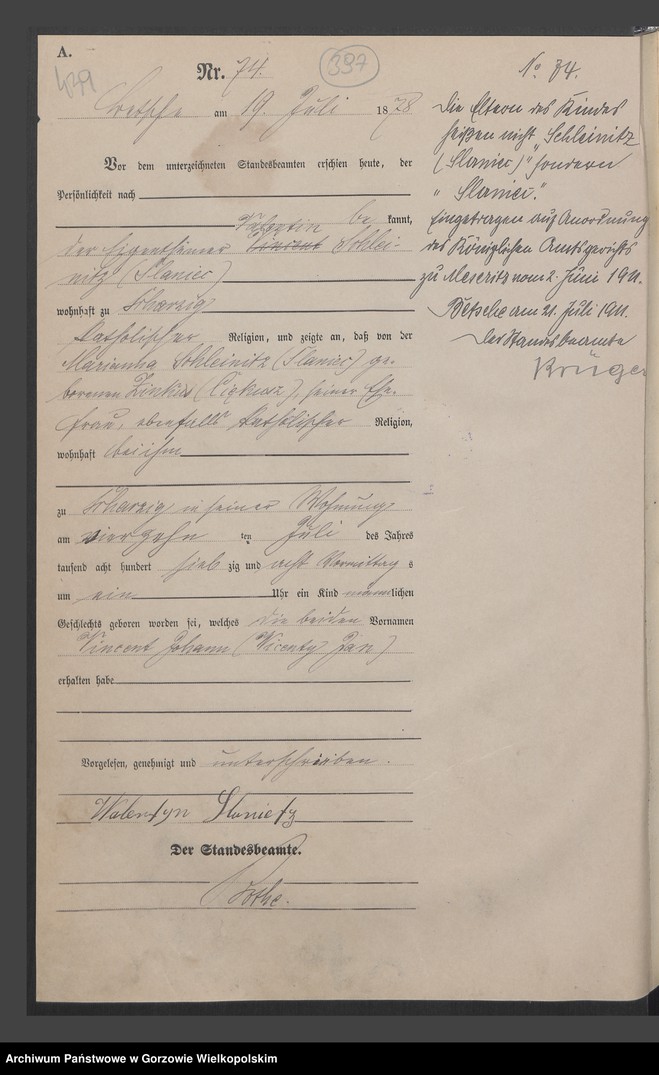 A.
479
397
Nr. 74.
Betsche am 19. Juli 1878
Vor dem unterzeichneten Standesbeamten erschien heute, der
Persönlichkeit nach
Valentin be kannt,
der Eigenthümer Vincent Schlei-
nitz (Slaniec)
wohnhaft zu Scharzig
katholischer Religion, und zeigte an, daß von der
Marianna Schleinitz (Slaniec) ge-
borenen, seiner Ehe-
frau, ebenfalls katholischer Religion,
wohnhaft bei ihm
zu Scharzig in seiner Wohnung
am vierzehn ten Juli des Jahres
tausend acht hundert sieb zig und acht Vormittag s
um ein Uhr ein Kind männlichen
Geschlechts geboren worden sei, welches die beiden Vornamen
Vincent Johann (Vicenty Jan)
erhalten habe
Vorgelesen, genehmigt und unterschrieben.
Walentyn Slonietz
Der Standesbeamte.
No 74.
Die Eltern des Kindes
heißen nicht „Schleinitz
(Slaniec)" sondern
„Slaniec."
Eingetragen auf Anordnung
des Königlichen Amtsgerichts
zu Meseritz vom 2. Juni 1911.
Betsche am 21. Juli 1911.
Der Standesbeamte
Krüger
Archiwum Państwowe w Gorzowie Wielkopolskim